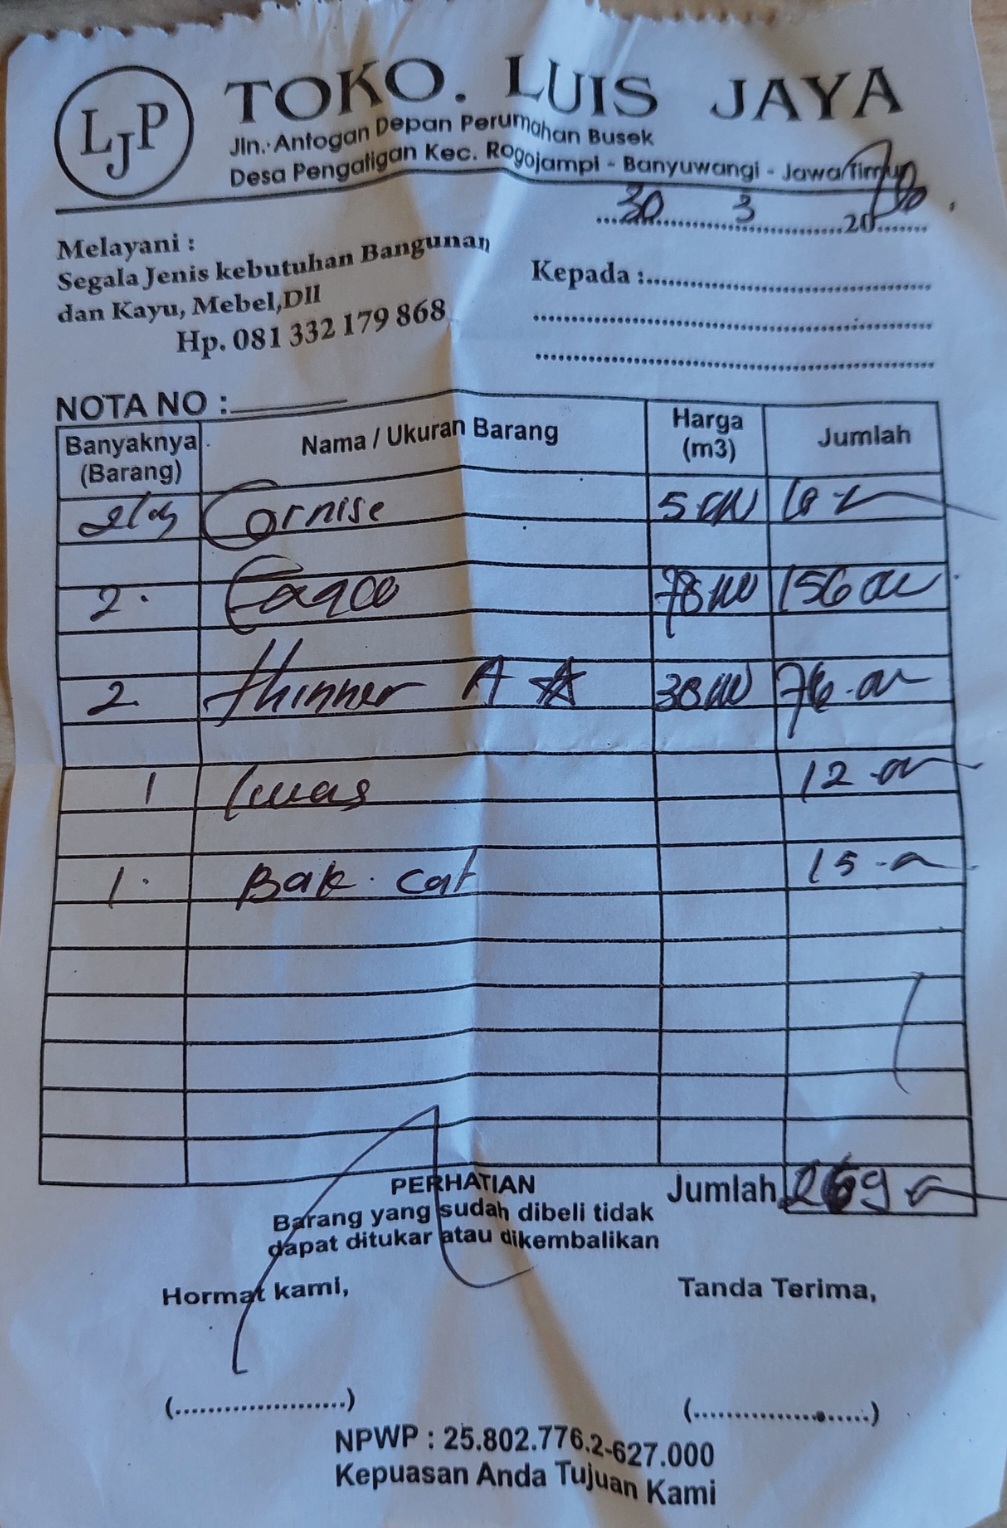 LJP
TOKO. LUIS JAYA
Jln. Antogan Depan Perumahan Busek
Desa Pengatigan Kec. Rogojampi - Banyuwangi - Jawa Timur
30 3 20
Melayani :
Segala Jenis kebutuhan Bangunan
dan Kayu, Mebel,Dll
Hp. 081 332 179 868
Kepada :
NOTA NO :
Banyaknya (Barang) Nama / Ukuran Barang Harga (m3) Jumlah
Cornise
2. 156
2 thinner A 38 76
1 kuas 12
1. Bak cat 15
Jumlah 269
PERHATIAN
Barang yang sudah dibeli tidak
dapat ditukar atau dikembalikan
Hormat kami, Tanda Terima,
(....................) (....................)
NPWP : 25.802.776.2-627.000
Kepuasan Anda Tujuan Kami